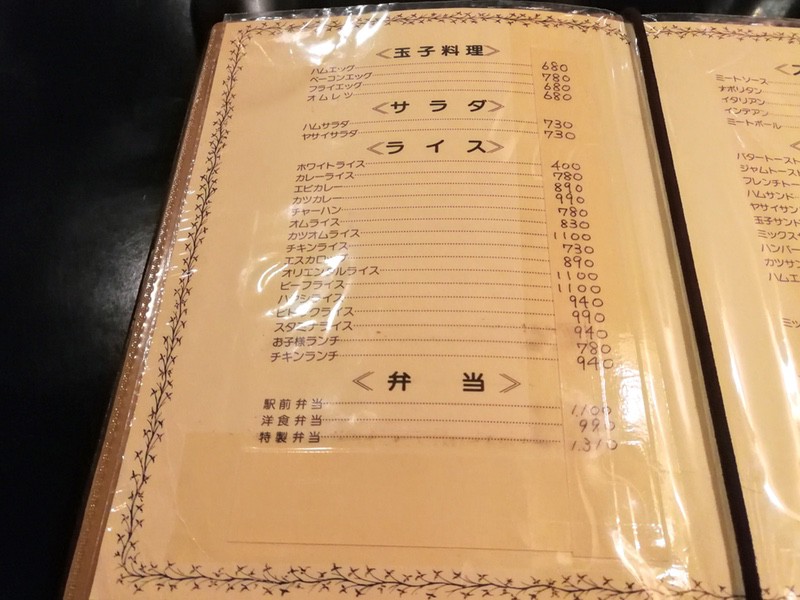 <玉子料理>
ハムエッグ 680
ベーコンエッグ 780
フライエッグ 680
オムレツ 680
<サラダ>
ハムサラダ 730
ヤサイサラダ 730
<ライス>
ホワイトライス 400
カレーライス 780
エビカレー 890
カツカレー 990
チャーハン 780
オムライス 830
カツオムライス 1100
チキンライス 730
エスカロップ 890
オリエンタルライス 1100
ビーフライス 1100
ハヤシライス 940
ライス 990
スタミナライス 940
お子様ランチ 780
チキンランチ 940
<弁当>
駅前弁当 1,100
洋食弁当 990
特製弁当 1,310
ミートソース
ナポリタン
イタリアン
インデアン
ミートボール
バタートースト
ジャムトースト
フレンチトー
ハムサンド
ヤサイサン
玉子サンド
ミックスサ
ハンバー
カツサン
ハムエ
ミッ